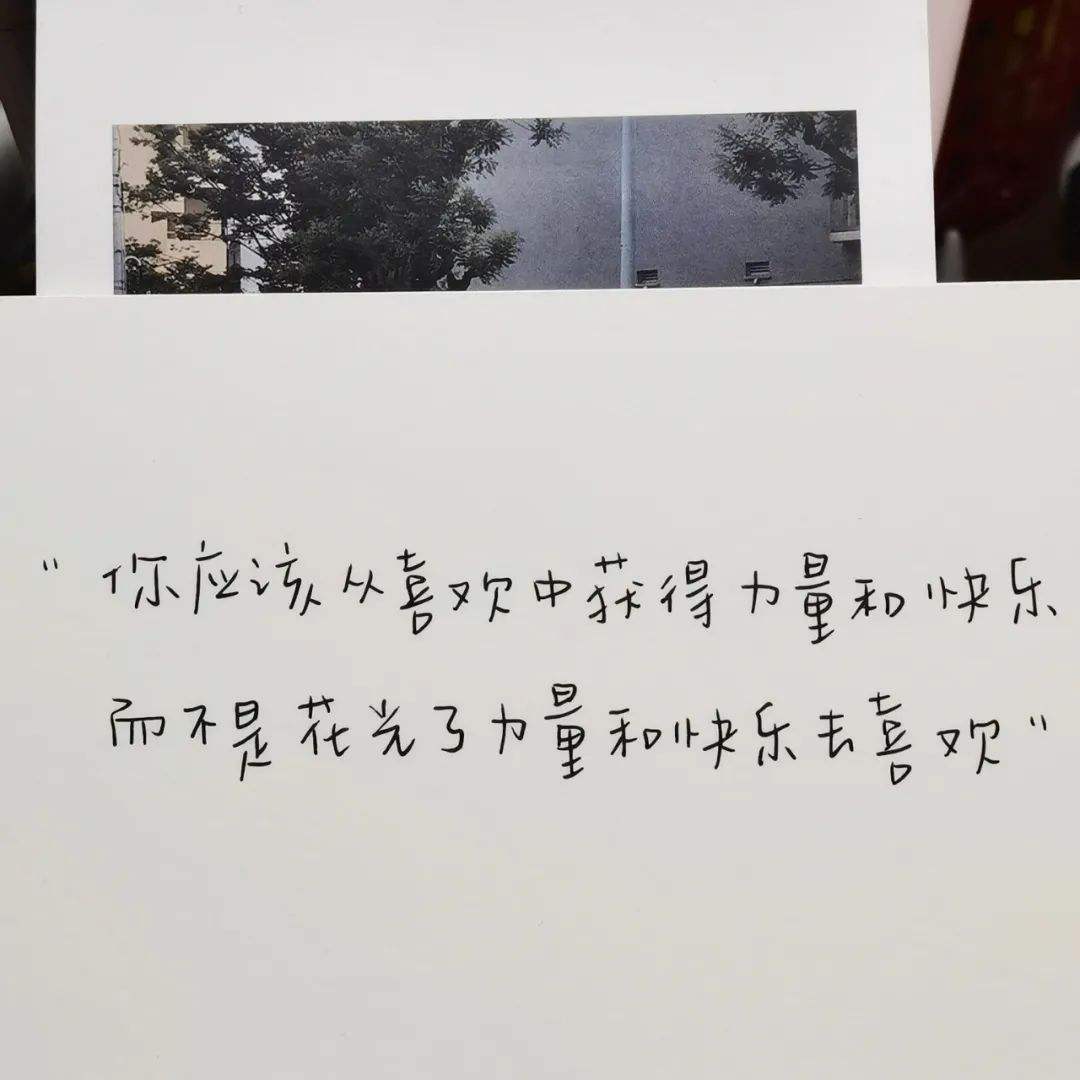 "你应该从喜欢中获得力量和快乐
而不是花光了力量和快乐去喜欢"